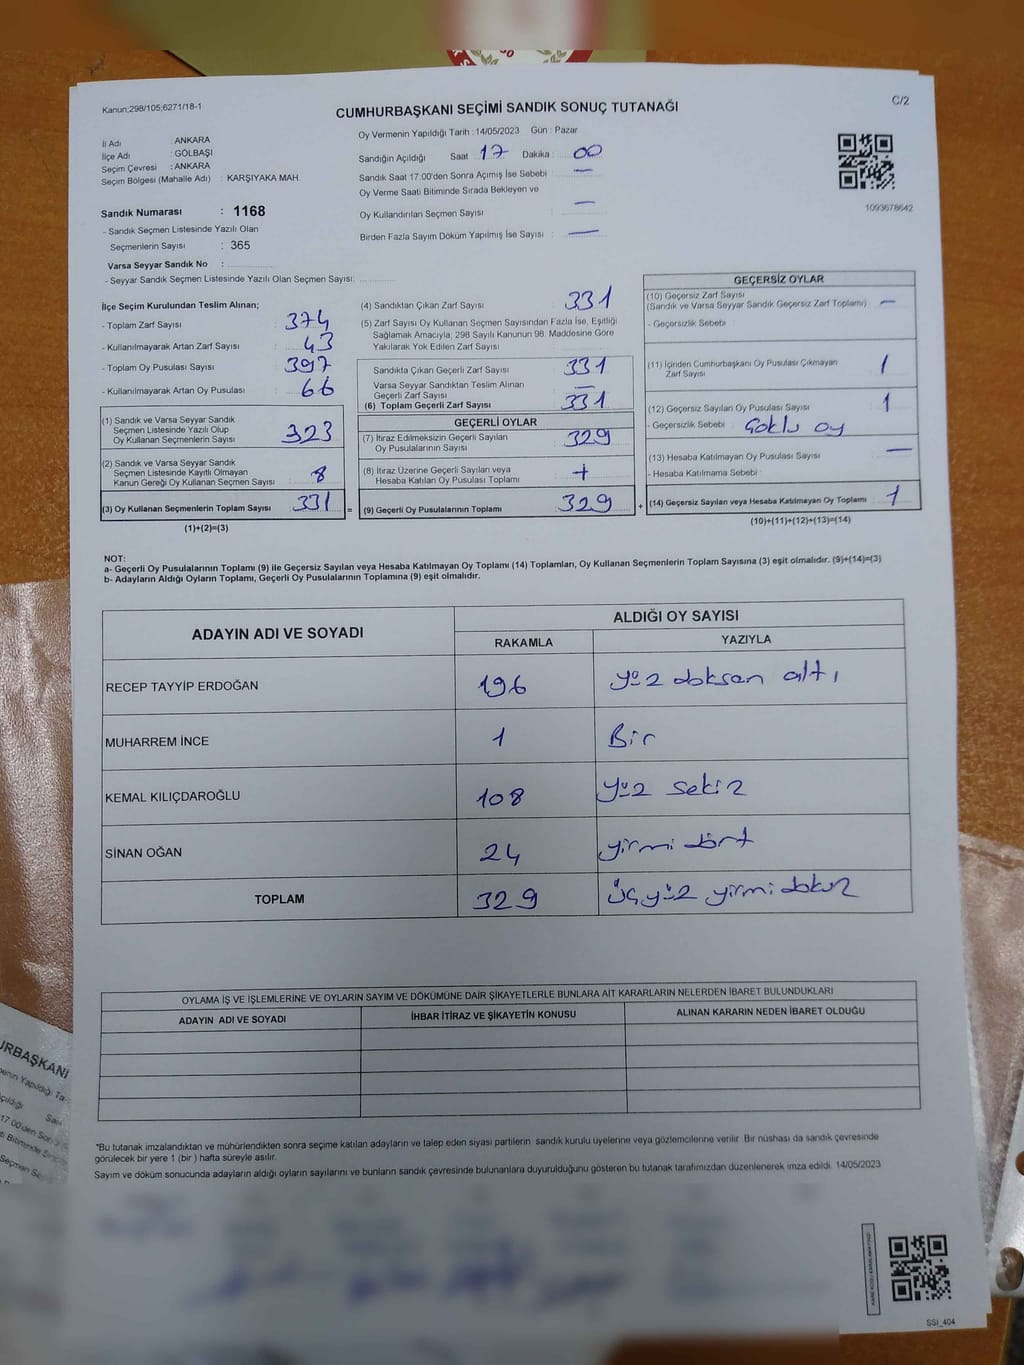 Kanun;298/105;6271/18-1
C/2
CUMHURBAŞKANI SEÇİMİ SANDIK SONUÇ TUTANAĞI
İl Adı : ANKARA
İlçe Adı : GÖLBAŞI
Seçim Çevresi : ANKARA
Seçim Bölgesi (Mahalle Adı) : KARŞIYAKA MAH.
Sandık Numarası : 1168
- Sandık Seçmen Listesinde Yazılı Olan
Seçmenlerin Sayısı : 365
Varsa Seyyar Sandık No :
- Seyyar Sandık Seçmen Listesinde Yazılı Olan Seçmen Sayısı:
Oy Vermenin Yapıldığı Tarih : 14/05/2023 Gün : Pazar
Sandığın Açıldığı Saat 17 Dakika : 00
Sandık Saat 17:00'den Sonra Açımış İse Sebebi : —
Oy Verme Saati Bitiminde Sırada Bekleyen ve
Oy Kullandırılan Seçmen Sayısı : —
Birden Fazla Sayım Döküm Yapılmış İse Sayısı : —
1093678642
İlçe Seçim Kurulundan Teslim Alınan;
- Toplam Zarf Sayısı : 374
- Kullanılmayarak Artan Zarf Sayısı : 43
- Toplam Oy Pusulası Sayısı : 397
- Kullanılmayarak Artan Oy Pusulası : 66
(1) Sandık ve Varsa Seyyar Sandık
Seçmen Listesinde Yazılı Olup
Oy Kullanan Seçmenlerin Sayısı 323
(2) Sandık ve Varsa Seyyar Sandık
Seçmen Listesinde Kayıtlı Olmayan
Kanun Gereği Oy Kullanan Seçmen Sayısı : 8
(3) Oy Kullanan Seçmenlerin Toplam Sayısı 331 =
(1)+(2)=(3)
(4) Sandıktan Çıkan Zarf Sayısı 331
(5) Zarf Sayısı Oy Kullanan Seçmen Sayısından Fazla İse, Eşitliği
Sağlamak Amacıyla, 298 Sayılı Kanunun 98. Maddesine Göre
Yakılarak Yok Edilen Zarf Sayısı
Sandıkta Çıkan Geçerli Zarf Sayısı 331
Varsa Seyyar Sandıktan Teslim Alınan
Geçerli Zarf Sayısı —
(6) Toplam Geçerli Zarf Sayısı 331
GEÇERLİ OYLAR
(7) İtiraz Edilmeksizin Geçerli Sayılan
Oy Pusulasının Sayısı 329
(8) İtiraz Üzerine Geçerli Sayılan veya
Hesaba Katılan Oy Pusulası Toplamı +
(9) Geçerli Oy Pusulalarının Toplamı 329 +
GEÇERSİZ OYLAR
(10) Geçersiz Zarf Sayısı
(Sandık ve Varsa Seyyar Sandık Geçersiz Zarf Toplamı) —
- Geçersizlik Sebebi
(11) İçinden Cumhurbaşkanı Oy Pusulası Çıkmayan
Zarf Sayısı 1
(12) Geçersiz Sayılan Oy Pusulası Sayısı 1
- Geçersizlik Sebebi : Çoklu oy
(13) Hesaba Katılmayan Oy Pusulası Sayısı —
- Hesaba Katılmama Sebebi :
(14) Geçersiz Sayılan veya Hesaba Katılmayan Oy Toplamı 1
(10)+(11)+(12)+(13)=(14)
NOT:
a- Geçerli Oy Pusulalarının Toplamı (9) ile Geçersiz Sayılan veya Hesaba Katılmayan Oy Toplamı (14) Toplamları, Oy Kullanan Seçmenlerin Toplam Sayısına (3) eşit olmalıdır. (9)+(14)=(3)
b- Adayların Aldığı Oyların Toplamı, Geçerli Oy Pusulalarının Toplamına (9) eşit olmalıdır.
ADAYIN ADI VE SOYADI ALDIĞI OY SAYISI
RAKAMLA YAZIYLA
RECEP TAYYİP ERDOĞAN 196 yüz doksan altı
MUHARREM İNCE 1 Bir
KEMAL KILIÇDAROĞLU 108 yüz sekiz
SİNAN OĞAN 24 yirmi dört
TOPLAM 329 üçyüz yirmi dokuz
OYLAMA İŞ VE İŞLEMLERİNE VE OYLARIN SAYIM VE DÖKÜMÜNE DAİR ŞİKAYETLERLE BUNLARA AİT KARARLARIN NELERDEN İBARET BULUNDUKLARI
ADAYIN ADI VE SOYADI İHBAR İTİRAZ VE ŞİKAYETİN KONUSU ALINAN KARARIN NEDEN İBARET OLDUĞU
*Bu tutanak imzalandıktan ve mühürlendikten sonra seçime katılan adayların ve talep eden siyasi partilerin sandık kurulu üyelerine veya gözlemcilerine verilir. Bir nüshası da sandık çevresinde
görülecek bir yere 1 (bir ) hafta süreyle asılır.
Sayım ve döküm sonucunda adayların aldığı oyların sayılarını ve bunların sandık çevresinde bulunanlara duyurulduğunu gösteren bu tutanak tarafımızdan düzenlenerek imza edildi. 14/05/2023
SSI_404